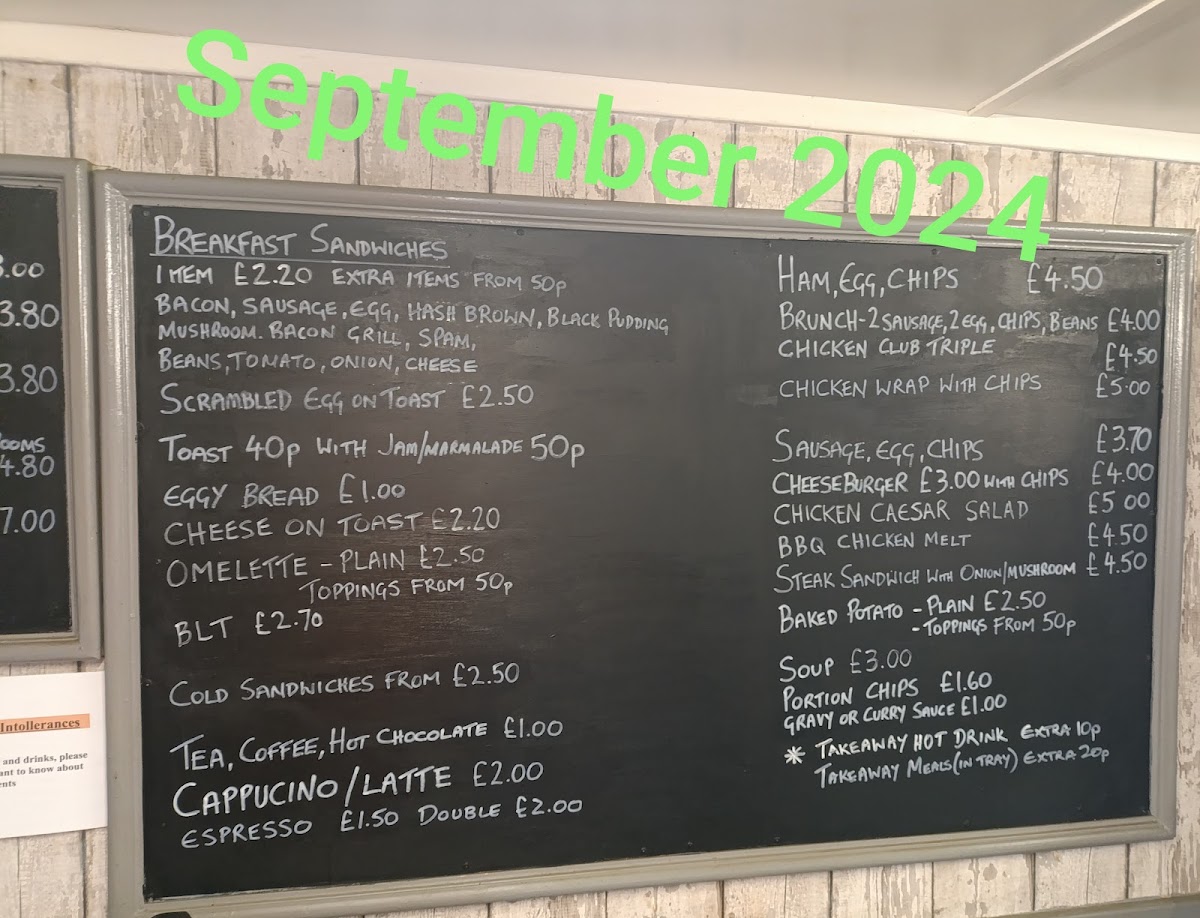 September 2024
3.80
3.80
4.80
7.00
Intollerances
and drinks, please
want to know about
BREAKFAST SANDWICHES
1 ITEM £2.20 EXTRA ITEMS FROM 50p
BACON, SAUSAGE, EGG, HASH BROWN, BLACK PUDDING
MUSHROOM. BACON GRILL, SPAM,
BEANS, TOMATO, ONION, CHEESE
SCRAMBLED EGG ON TOAST £2.50
TOAST 40p WITH JAM/MARMALADE 50p
EGGY BREAD £1.00
CHEESE ON TOAST £2.20
OMELETTE - PLAIN £2.50
TOPPINGS FROM 50p
BLT £2.70
COLD SANDWICHES FROM £2.50
TEA, COFFEE, HOT CHOCOLATE £1.00
CAPPUCINO/LATTE £2.00
ESPRESSO £1.50 DOUBLE £2.00
HAM, EGG, CHIPS £4.50
BRUNCH-2 SAUSAGE, 2 EGG, CHIPS, BEANS £4.00
CHICKEN CLUB TRIPLE £4.50
CHICKEN WRAP WITH CHIPS £5.00
SAUSAGE, EGG, CHIPS £3.70
CHEESEBURGER £3.00 WITH CHIPS £4.00
CHICKEN CAESAR SALAD £5 00
BBQ CHICKEN MELT £4.50
STEAK SANDWICH WITH ONION/MUSHROOM £4.50
BAKED POTATO - PLAIN £2.50
- TOPPINGS FROM 50p
SOUP £3.00
PORTION CHIPS £1.60
GRAVY OR CURRY SAUCE £1.00
* TAKEAWAY HOT DRINK EXTRA 10p
TAKEAWAY MEALS (IN TRAY) EXTRA 20p